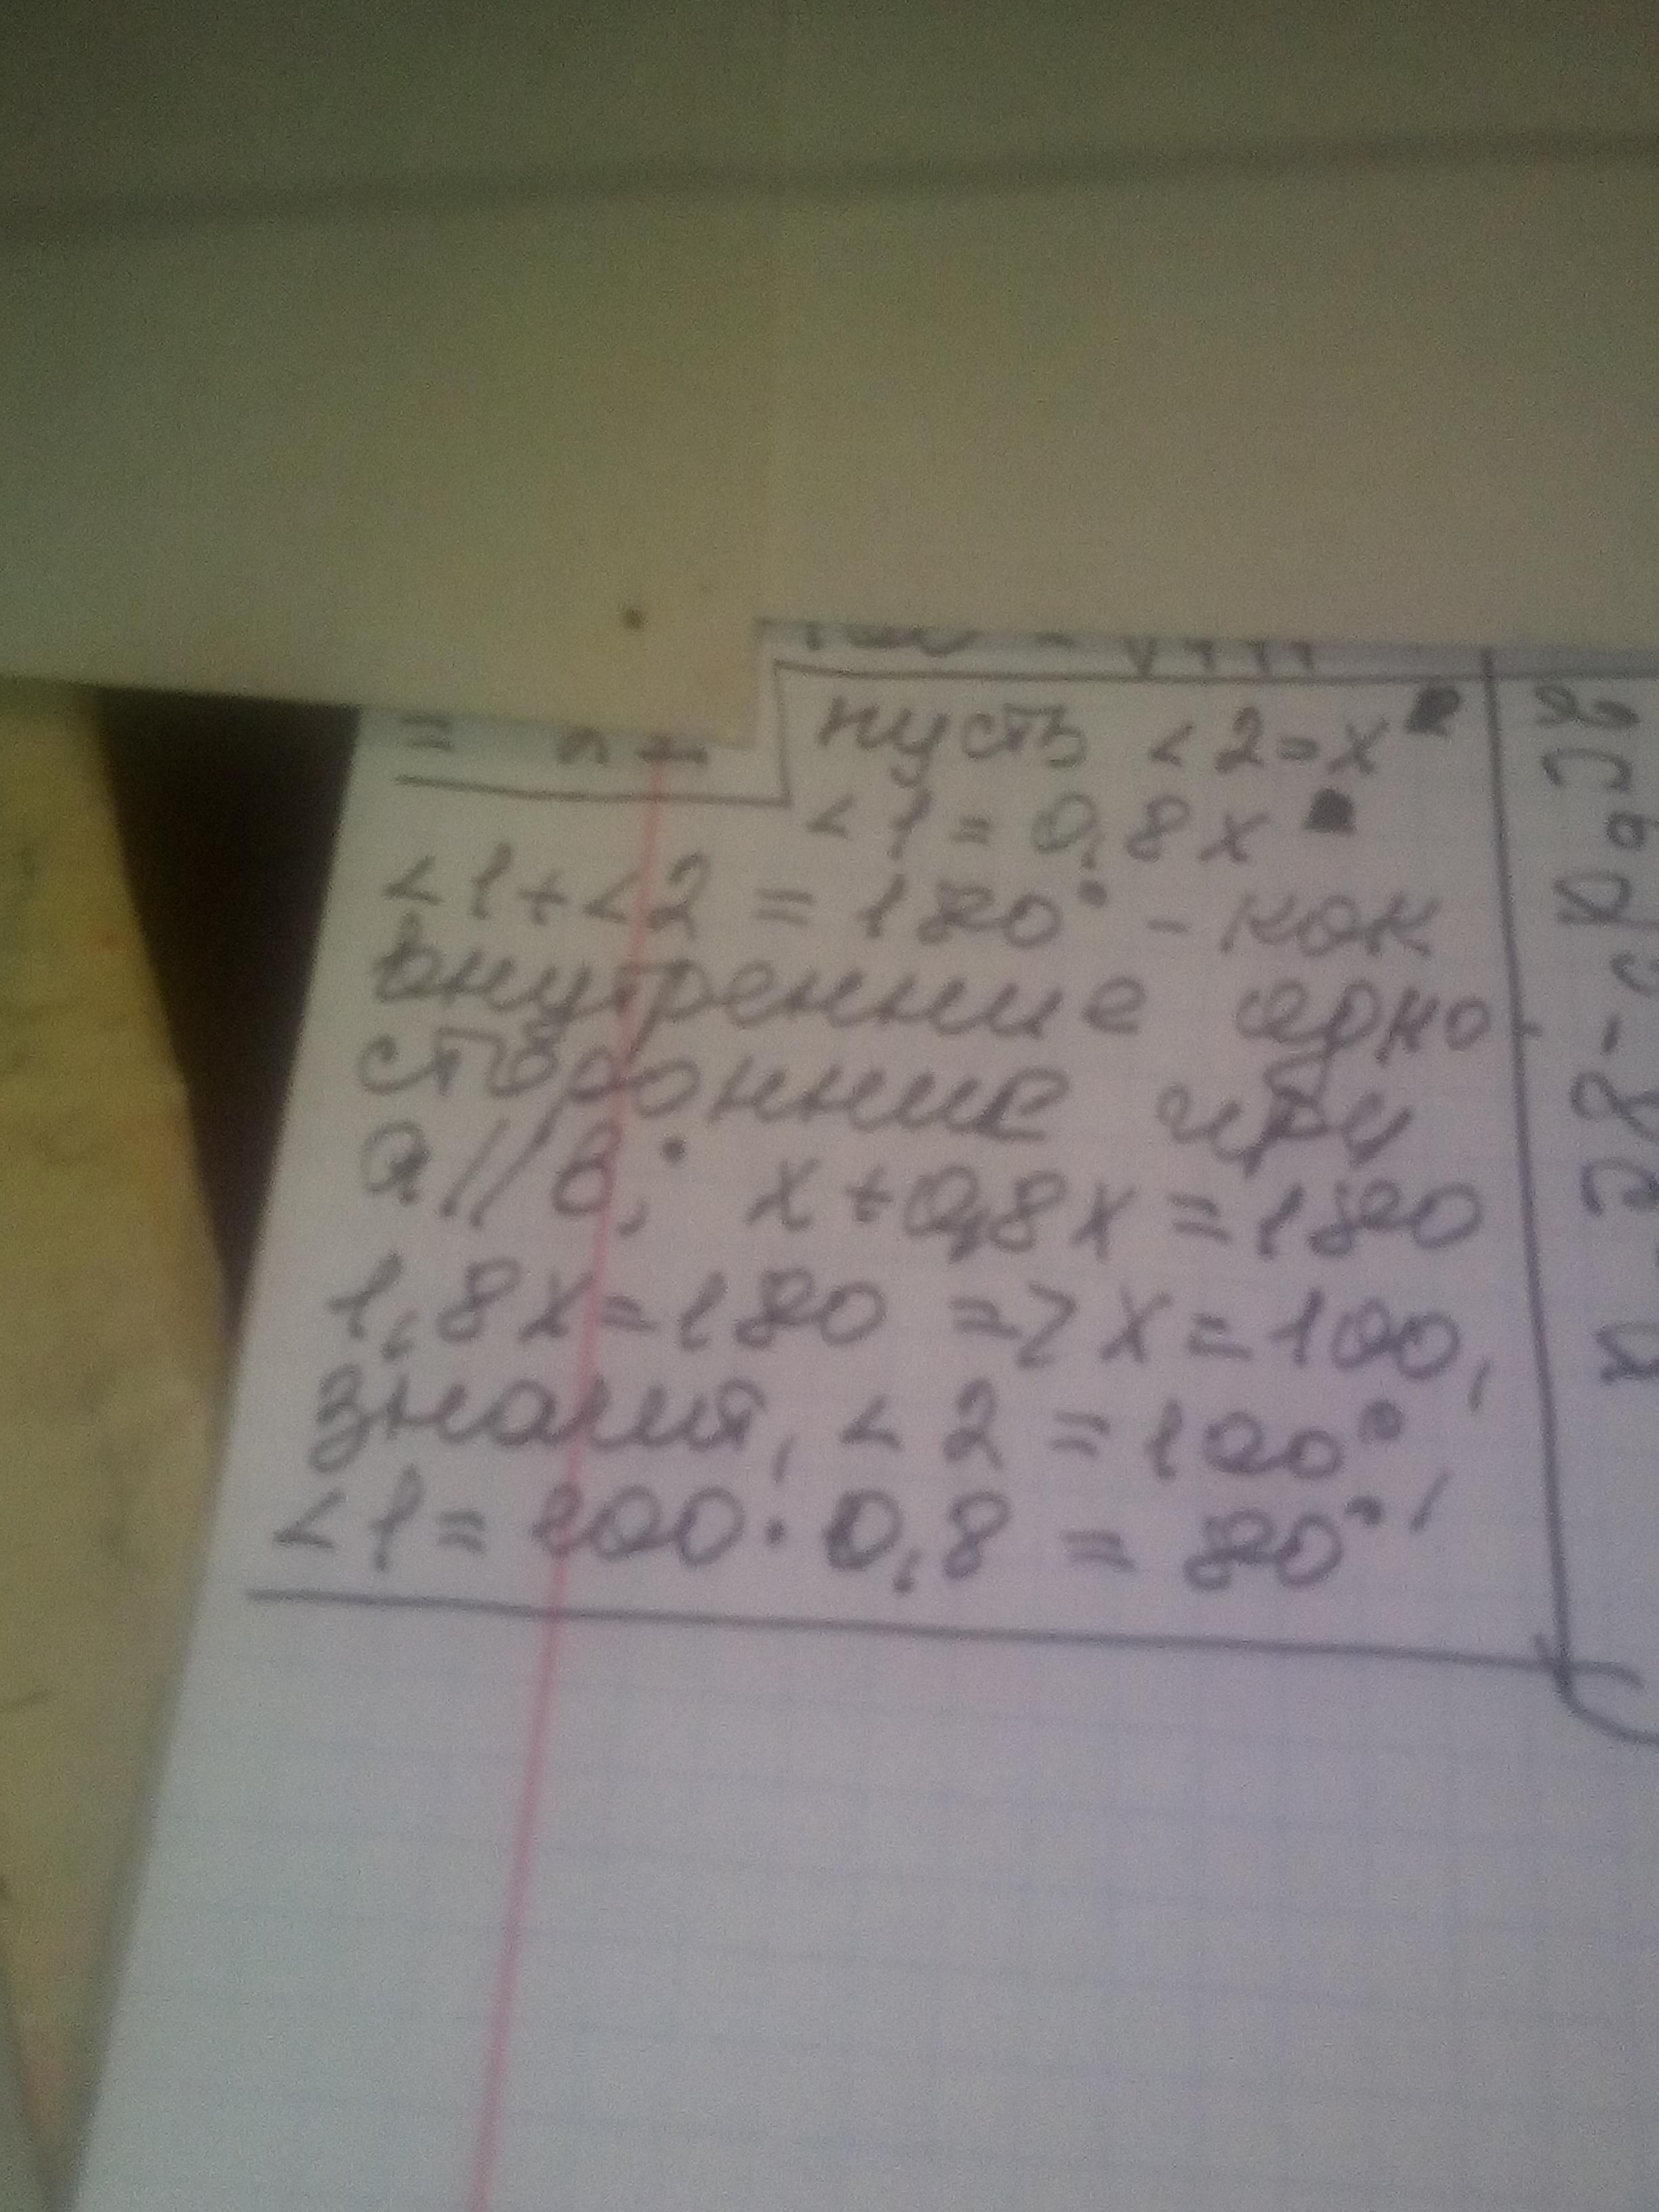 пусть <2=x
<1=0,8x
<1+<2=180° - как
внутренние одно-
сторонние при
a//b; x+0,8x=180
1,8x=180 => x=100,
значит, <2=100°,
<1=100·0,8=80°